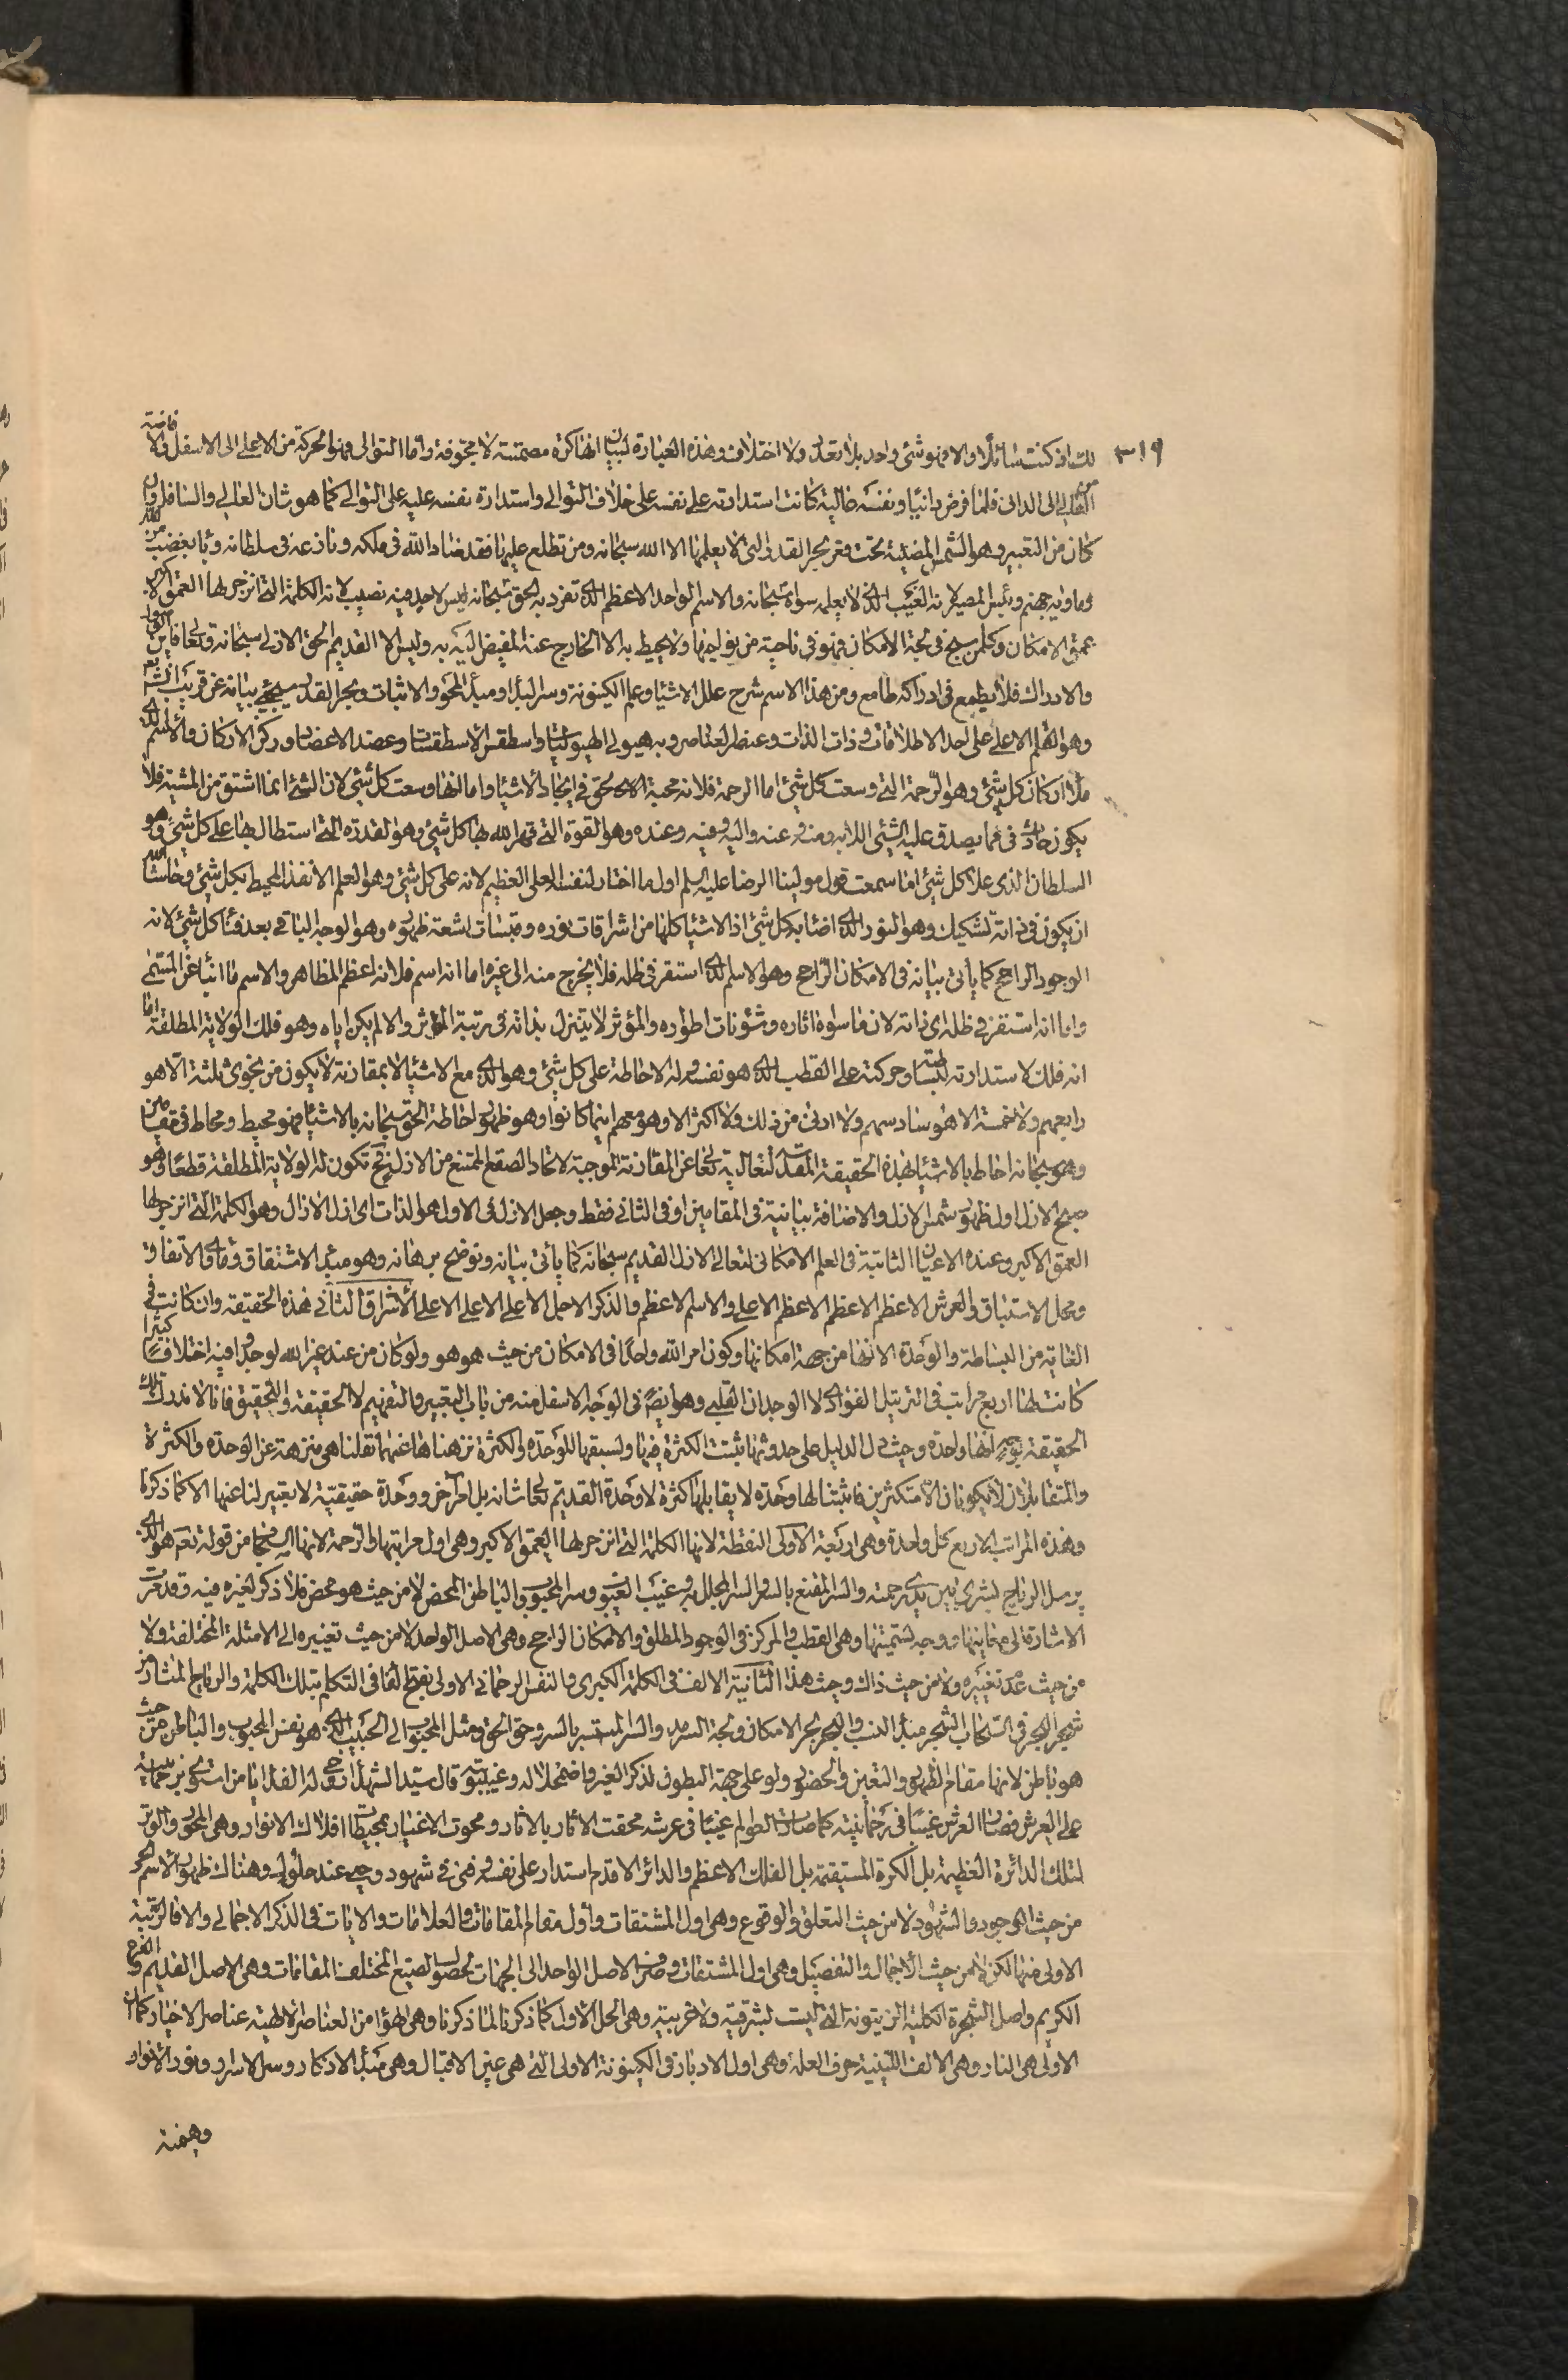 ٣١٩
لك ان كنت سائلا والا فهو شئ واحد بلا تعدد ولا اختلاف وهذه العبارة لبيان انها كرة مصمتة لا مجوفة واما التوالي فهو الحركة من الاعلى الى الاسفل
العالي الى الداني فلما فرض دانيا ونفسه عالية كانت استدارته على نفسه على خلاف التوالي واستدارة نفسه عليه على التوالي كما هو شان العالي والسافل وان
كان من التعبير وهو الشمس المضيئة تحت قعر بحر القدر التي لا يعلمها الا الله سبحانه ومن تطلع عليها فقد ضاد الله في ملكه ونازعه في سلطانه وباء بغضب من الله
وماويه جهنم وبئس المصير لانه الغيب الذي لا يعلمه سواه سبحانه والاسم الواحد الاعظم الذي تفرد به الحق سبحانه ليس لاحد منه نصيب لانه الكلمة التي انزجر لها العمق الاكبر
عمق الامكان وكلمن سبح في لجة الامكان فهو في ناحية من نواحيها ولا يحيط به الا الخارج عنه المفيض اليه به وليس الا القديم الحق الازلي سبحانه وتعالى
والادراك فلا يطمع في ادراكه طامع ومن هذا الاسم شرح علل الاشياء وعلم الكينونة وسر البداء ومبدء المحو والاثبات وبحر القدر سيجئ بيانه عن قريب انشاء الله
وهو القلم الاعلى على احد الاطلاقات وذات الذات وعنصر العناصر وبه هيولي الهيوليات واسطقس الاسطقسات وعضد الاعضاد وركن الاركان والاسم الذي
ملأ اركان كل شئ وهو الرحمة التي وسعت كل شئ اما الرحمة فلانه محبة الحق في ايجاد الاشياء واما انها وسعت كل شئ لان الشئ انما اشتق من المشية فلا
يكون حادث فيما يصدق عليه الشئ الا به ومنه وعنه واليه وفيه وعنده وهو القوة التي قهر الله بها كل شئ وهو القدرة التي استطال بها على كل شئ وهو
السلطان الذي علا كل شئ اما سمعت قول مولينا الرضا عليه السلم اول ما اختار لنفسه العلي العظيم لانه على كل شئ وهو العلم الانفذ المحيط بكل شئ وحاشا
ان يكون في ذاته تشكيك وهو النور الذي اضاء به كل شئ اذ الاشياء كلها من اشراقات نوره وقبسات اشعة ظهوره وهو الوجه الباقي بعد فناء كل شئ لانه
الوجود الراجح كما يأتي بيانه في الامكان الراجح وهو الاسم الذي استقر في ظله فلا يخرج منه الى غيره اما انه اسم فلانه اعظم المظاهر والاسم ما انبأ عن المسمى
واما انه استقر في ظله اي ذاته لان ما سواه اثاره وشؤنات اطواره والمؤثر لا يتنزل بذاته في رتبة المؤثر والا لم يكن اياه وهو فلك الولاية المطلقة اما
انه فلك لاستدارته وحركته على القطب الذي هو نفسه وله الاحاطة على كل شئ وهو الذي مع الاشياء لا بمقارنة لا يكون من نجوى ثلثة الا هو
رابعهم ولا خمسة الا هو سادسهم ولا ادنى من ذلك ولا اكثر الا وهو معهم اينما كانوا وهو ظهور احاطة الحق سبحانه بالاشياء فهو محيط ومحاط في مقامين
وهو سبحانه احاط بالاشياء بهذه الحقيقة المقدسة لتعاليه عن المقارنة الموجبة لاتحاد الصقع الممتنع من الازل فح تكون له الولاية المطلقة قطعا وهو
صبح الازل اول ظهور شمس الازل والاضافة بيانية في المقامين او في الثاني فقط وجعل الازل في الاول هو الذات اي ازل الازال وهو الكلمة التي انزجر لها
العمق الاكبر وعنده الاعيان الثابتة في العلم الامكاني لتعالى الازل القديم سبحانه كما يأتي بيانه ونوضح برهانه وهو مبدء الاشتقاق وماء الاتفاق
ومحل الاستباق والعرش الاعظم الاعظم الاعظم الاعلى والاسم الاعظم والذكر الاجل الاعلى الاعلى الاعلى الاشراق الثاني هذه الحقيقة وان كانت في
الغاية من البساطة والوحدة الا انها من جهة امكانها وكون امر الله واحدا في الامكان من حيث هو هو ولو كان من عند غير الله لوجدوا فيه اختلافا كثيرا
كانت لها اربع مراتب في التنزيل الفؤادي لا الوجدان القلبي وهو ايضا في الوجه الاسفل منه من باب التعبير والتفهيم لا الحقيقة والتحقيق فانا لا ندرك تلك
الحقيقة بوجه انها واحدة وحيث دل الدليل على حدوثها ثبتت الكثرة فيها ولسبقها للوحدة والكثرة نزهناها عنهما فقلنا هي منزهة عن الوحدة والكثرة
والمتقابلان لا يكونان الا متكثرين فاثبتنا لها وحدة لا يقابلها كثرة لا وحدة القديم تعالى شانه بل امر اخر ووحدة حقيقية لا تعبير لنا عنها الا كما ذكرنا
وهذه المراتب الاربع كل واحدة وهي اربعة الاولى النقطة لانها الكلمة التي انزجر لها العمق الاكبر وهي اول مراتبها والرحمة لانها السحاب من قوله تعالى هو الذي
يرسل الرياح بشرى بين يدي رحمته والسر المقنع بالسر والسر المجلل به وغيب الغيوب وسر المحبوب والباطن المحض لا من حيث هو محض فلا ذكر لغيره فيه وقد مرت
الاشارة الى معانيها ووجه تسميتها وهي القطب والمركز في الوجود المطلق والامكان الراجح وهي الاصل الواحد لا من حيث تغييره الى الامثلة المختلفة ولا
من حيث عدم تغييره ولا من حيث ذاك وحيث هذا الثانية الالف في الكلمة الكبرى والنفس الرحماني الاولي بفتح الفاء في التكلم بتلك الكلمة والرياح المثار من
شجر البحر في السحاب الشجر مبدء النسب والبحر بحر الامكان ولجة السرمد والسر المستسر بالسر وحق الحق ومثل المحبوب الى الحبيب الذي هو نفس المحبوب والباطن من حيث
هو باطن لانها مقام الظهور والتعين والحضور ولو على جهة البطون لذكر الغير واضمحلاله وغيبته قال سيد الشهداء روحي له الفداء يا من استوى برحمانيته
على العرش فصار العرش غيبا في رحمانيته كما صارت العوالم غيبا في عرشه محقت الاثار بالاثار ومحوت الاغيار بمحيطات افلاك الانوار وهي المحور والوتر
لتلك الدائرة العظيمة بل الكرة المستقيمة بل الفلك الاعظم والدائر الاقدم استدار على نفسه فهي في شهود وحي عند حلوله وهناك ظهور الاسم الحي
من حيث الوجود والشهود لا من حيث التعلق والوقوع وهي اول المشتقات واول مقام المقامات والعلامات والايات في الذكر الاجمالي والا فالرتبة
الاولى منها لكن لا من حيث الاجمال والتفصيل وهي اول المشتقات وصرف الاصل الواحد الى الجهات لحصول الصيغ المختلف المقامات وهي الاصل القديم والفرع
الكريم واصل الشجرة الكلية الزيتونة التي ليست شرقية ولا غربية وهي الحل الاول كما ذكرنا لما ذكرنا وهي الهواء من العناصر الالهية عناصر الاختيار كما ان
الاولى هي النار وهي الالف اللينية حرف العلة وهي اول الادبار والكينونة الاولى التي هي عين الاقبال وهي مبدأ الادكار وسر الاسرار ونور الانوار